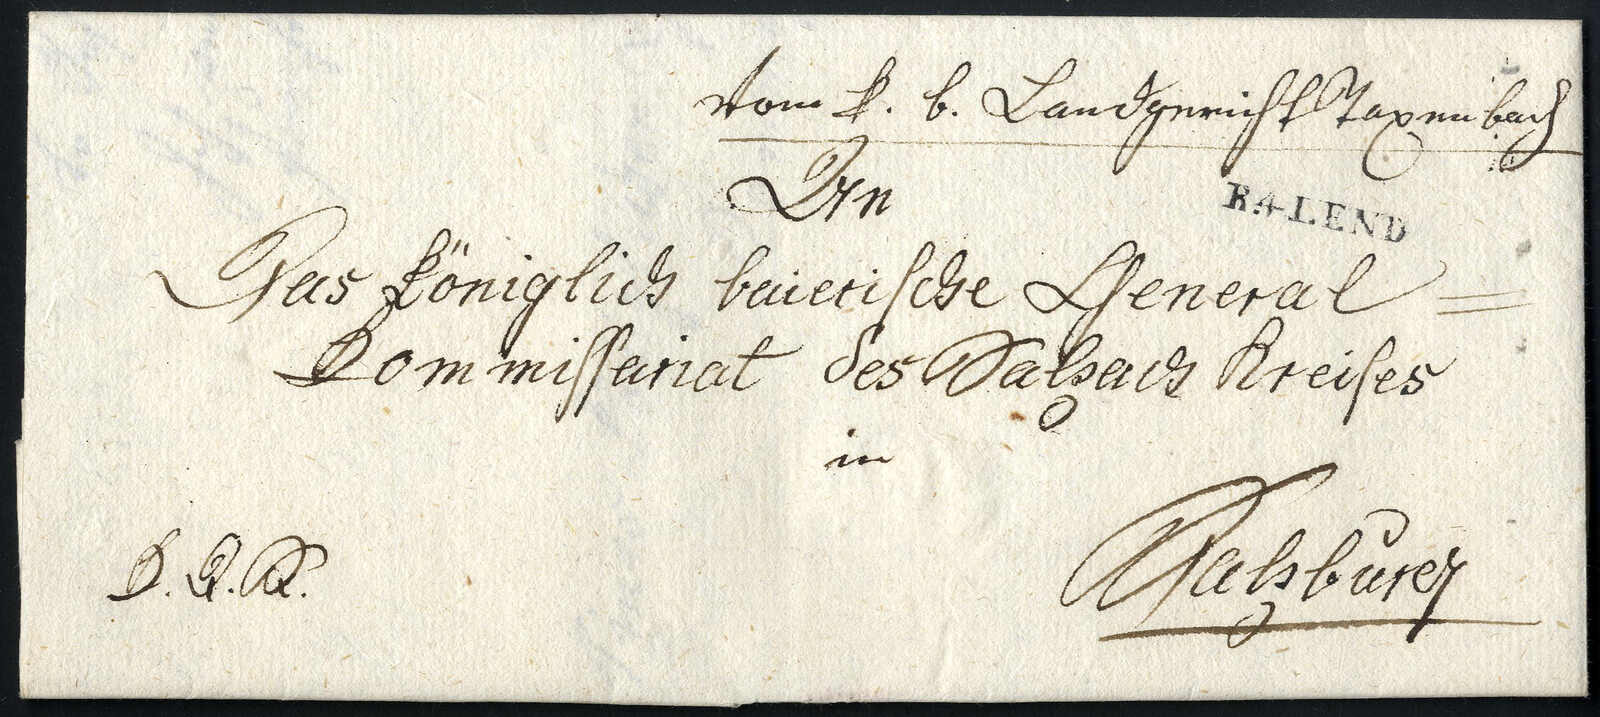 Vom k. b. Landgericht Taxenbach
An
R.4.LEND
Das königlich baierische General=
Kommissariat des Salzach Kreises
in
Salzburg